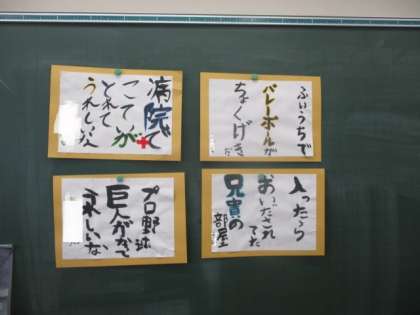 病院で
こてが
とれて
うれしいな
ふいうちで
バレーボールが
ちょくげきだ
プロ野球
巨人がかって
うれしいな
入ったら
おいだされてた
兄貴の部屋